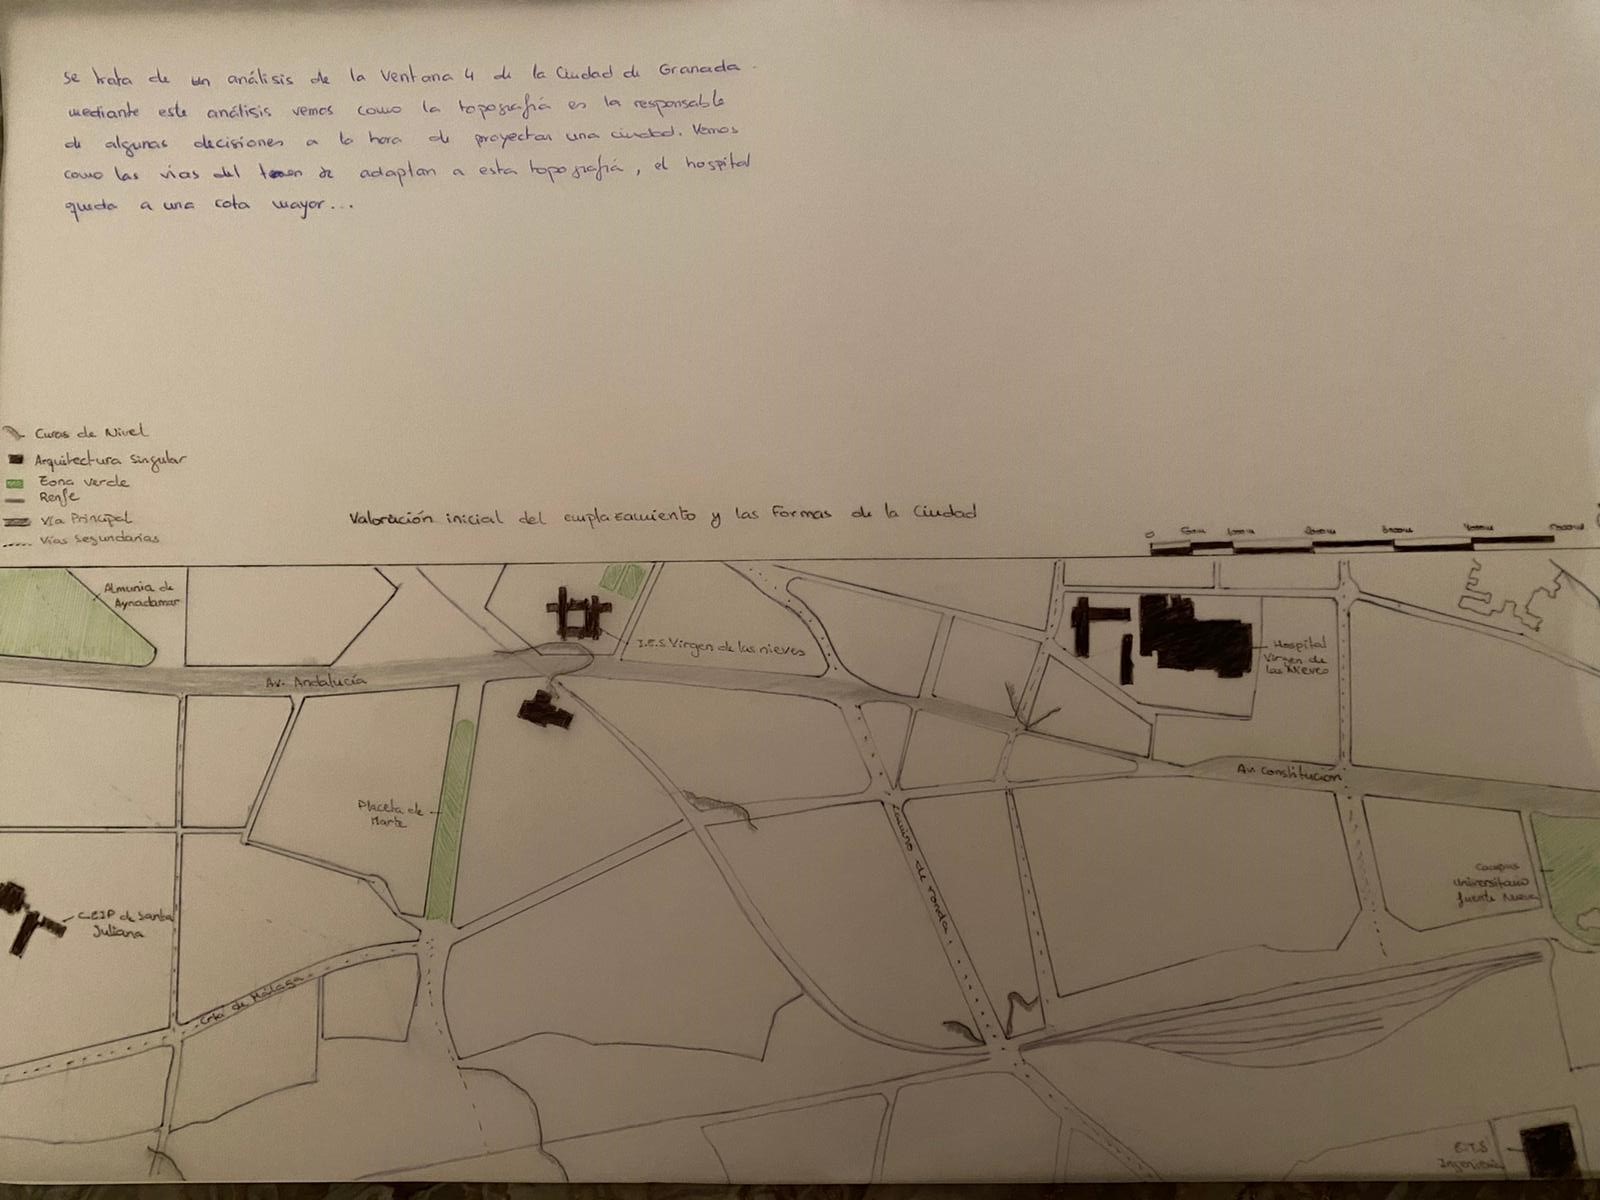 Se trata de un análisis de la Ventana 4 de la Ciudad de Granada.
mediante este análisis vemos como la topografía es la responsable
de algunas decisiones a la hora de proyectar una ciudad. Vemos
como las vías del tren se adaptan a esta topografía, el hospital
queda a una cota mayor...
Curas de Nivel
Arquitectura Singular
Zona verde
Renfe
Vía Principal
Vías Segundarias
Valoración inicial del emplazamiento y las Formas de la Ciudad
0
Almunia de
Aynadamar
I.E.S Virgen de las nieves
Hospital
Virgen de
las Nieves
Av. Andalucía
Av. Constitución
Placeta de
Marte
Camino de ronda
Campus
Universitario
fuente Nueva
C.E.I.P de Santa
Juliana
Crta de Málaga
E.T.S
Ingeniería